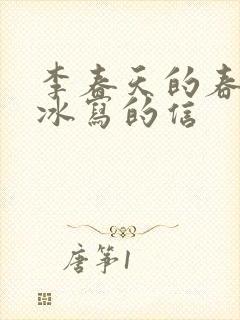 李春天的春
冰寫的信
唐筝1